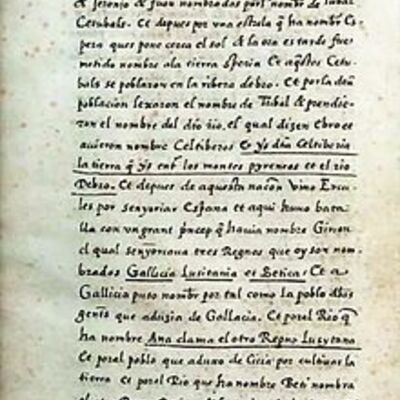 & Jeronjo & fuon nombrados por nombre de tubal
Cetubals. Et depues por una estela q̃ ha nombre Es-
pera ques pone cerca el sol & la ora es tarde fues
metido nombre ala tierra speria Et aq̃stos Cetu-
bals se poblaron en la ribera debro. Et por la dita
poblacion lexaron el nombre de Tubal & prendie-
ron el nombre del dito rio, el qual dizen ebro et
auieron nombre Celtiberos & ys dita Celtiberia
la tierra q̃ ys entre los montes pyreneos et el rio
Debro. Et depues de aquesta nacion vino Ercu-
les por senyoriar Espana et aqui huuo bata
lla con un grant princep q̃ hauia nombre Girion
el qual senyoriaua tres Regnos que oy son nom-
brados Gallicia Lusitania et Betica: Et a
Gallicia puso nombre por tal como la poblo dbas
gentes que aduzia de Gallacia. Et por el Rio q̃
ha nombre Ana clama el otro Regno Lusytano
Et por el poblo que aduxo de Gicia por cultiuar la
tierra Et por el Rio que ha nombre Beti nombra